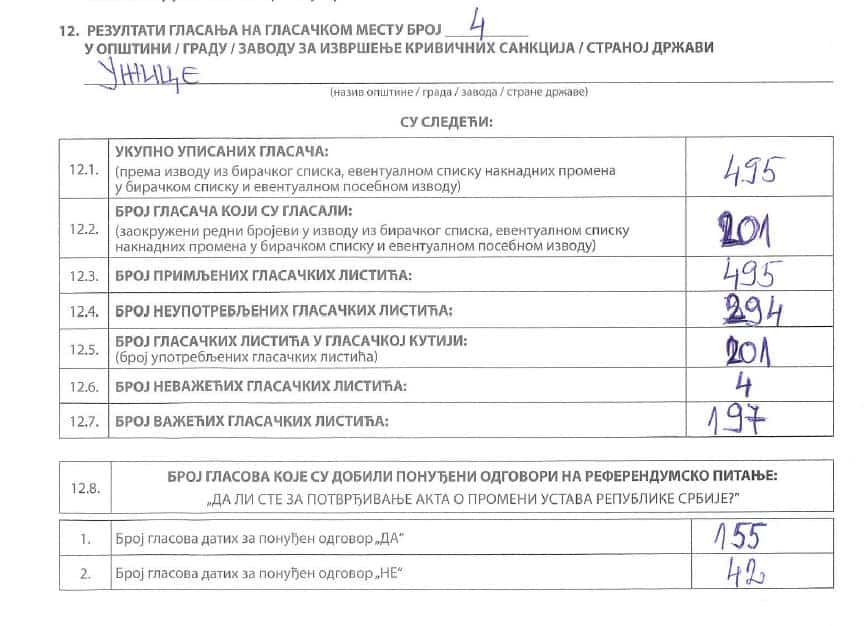 12. РЕЗУЛТАТИ ГЛАСАЊА НА ГЛАСАЧКОМ МЕСТУ БРОЈ 4
У ОПШТИНИ / ГРАДУ / ЗАВОДУ ЗА ИЗВРШЕЊЕ КРИВИЧНИХ САНКЦИЈА / СТРАНОЈ ДРЖАВИ
УЖИЦЕ
(назив општине / града / завода / стране државе)
СУ СЛЕДЕЋИ:
12.1. УКУПНО УПИСАНИХ ГЛАСАЧА: 495
(према изводу из бирачког списка, евентуалном списку накнадних промена
у бирачком списку и евентуалном посебном изводу)
12.2. БРОЈ ГЛАСАЧА КОЈИ СУ ГЛАСАЛИ: 201
(заокружени редни бројеви у изводу из бирачког списка, евентуалном списку
накнадних промена у бирачком списку и евентуалном посебном изводу)
12.3. БРОЈ ПРИМЉЕНИХ ГЛАСАЧКИХ ЛИСТИЋА: 495
12.4. БРОЈ НЕУПОТРЕБЉЕНИХ ГЛАСАЧКИХ ЛИСТИЋА: 294
12.5. БРОЈ ГЛАСАЧКИХ ЛИСТИЋА У ГЛАСАЧКОЈ КУТИЈИ: 201
(број употребљених гласачких листића)
12.6. БРОЈ НЕВАЖЕЋИХ ГЛАСАЧКИХ ЛИСТИЋА: 4
12.7. БРОЈ ВАЖЕЋИХ ГЛАСАЧКИХ ЛИСТИЋА: 197
12.8. БРОЈ ГЛАСОВА КОЈЕ СУ ДОБИЛИ ПОНУЂЕНИ ОДГОВОРИ НА РЕФЕРЕНДУМСКО ПИТАЊЕ:
„ДА ЛИ СТЕ ЗА ПОТВРЂИВАЊЕ АКТА О ПРОМЕНИ УСТАВА РЕПУБЛИКЕ СРБИЈЕ?"
1. Број гласова датих за понуђен одговор „ДА" 155
2. Број гласова датих за понуђен одговор „НЕ" 42